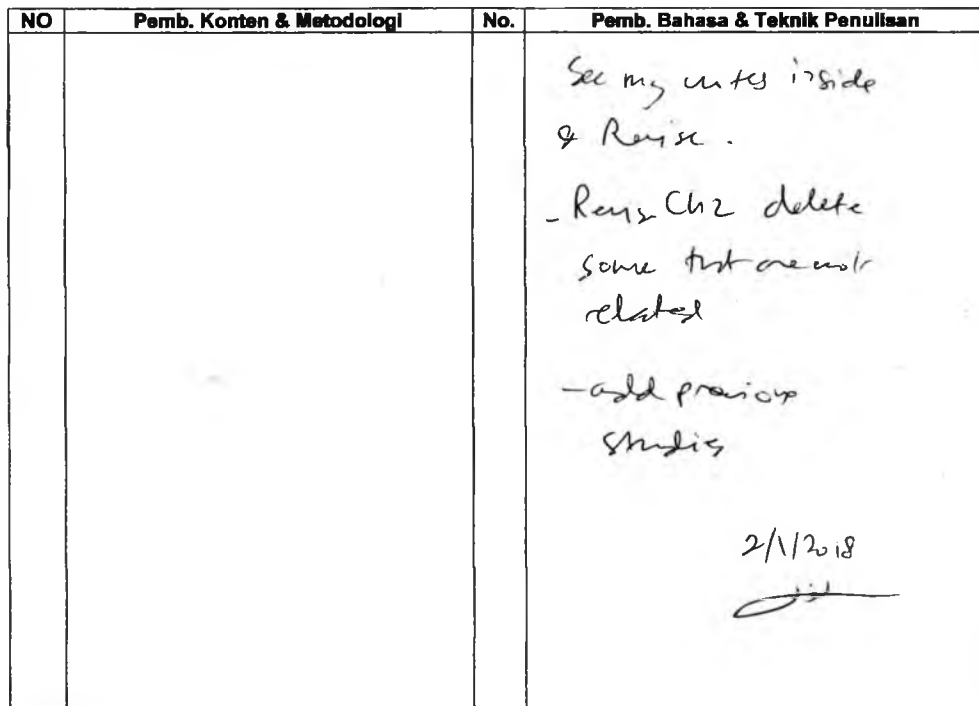 NO Pemb. Konten & Metodologi No. Pemb. Bahasa & Teknik Penulisan
See my notes inside
& Revise.
- Revise Ch2 delete
some that are not
related
- add previous
studies
2/1/2018